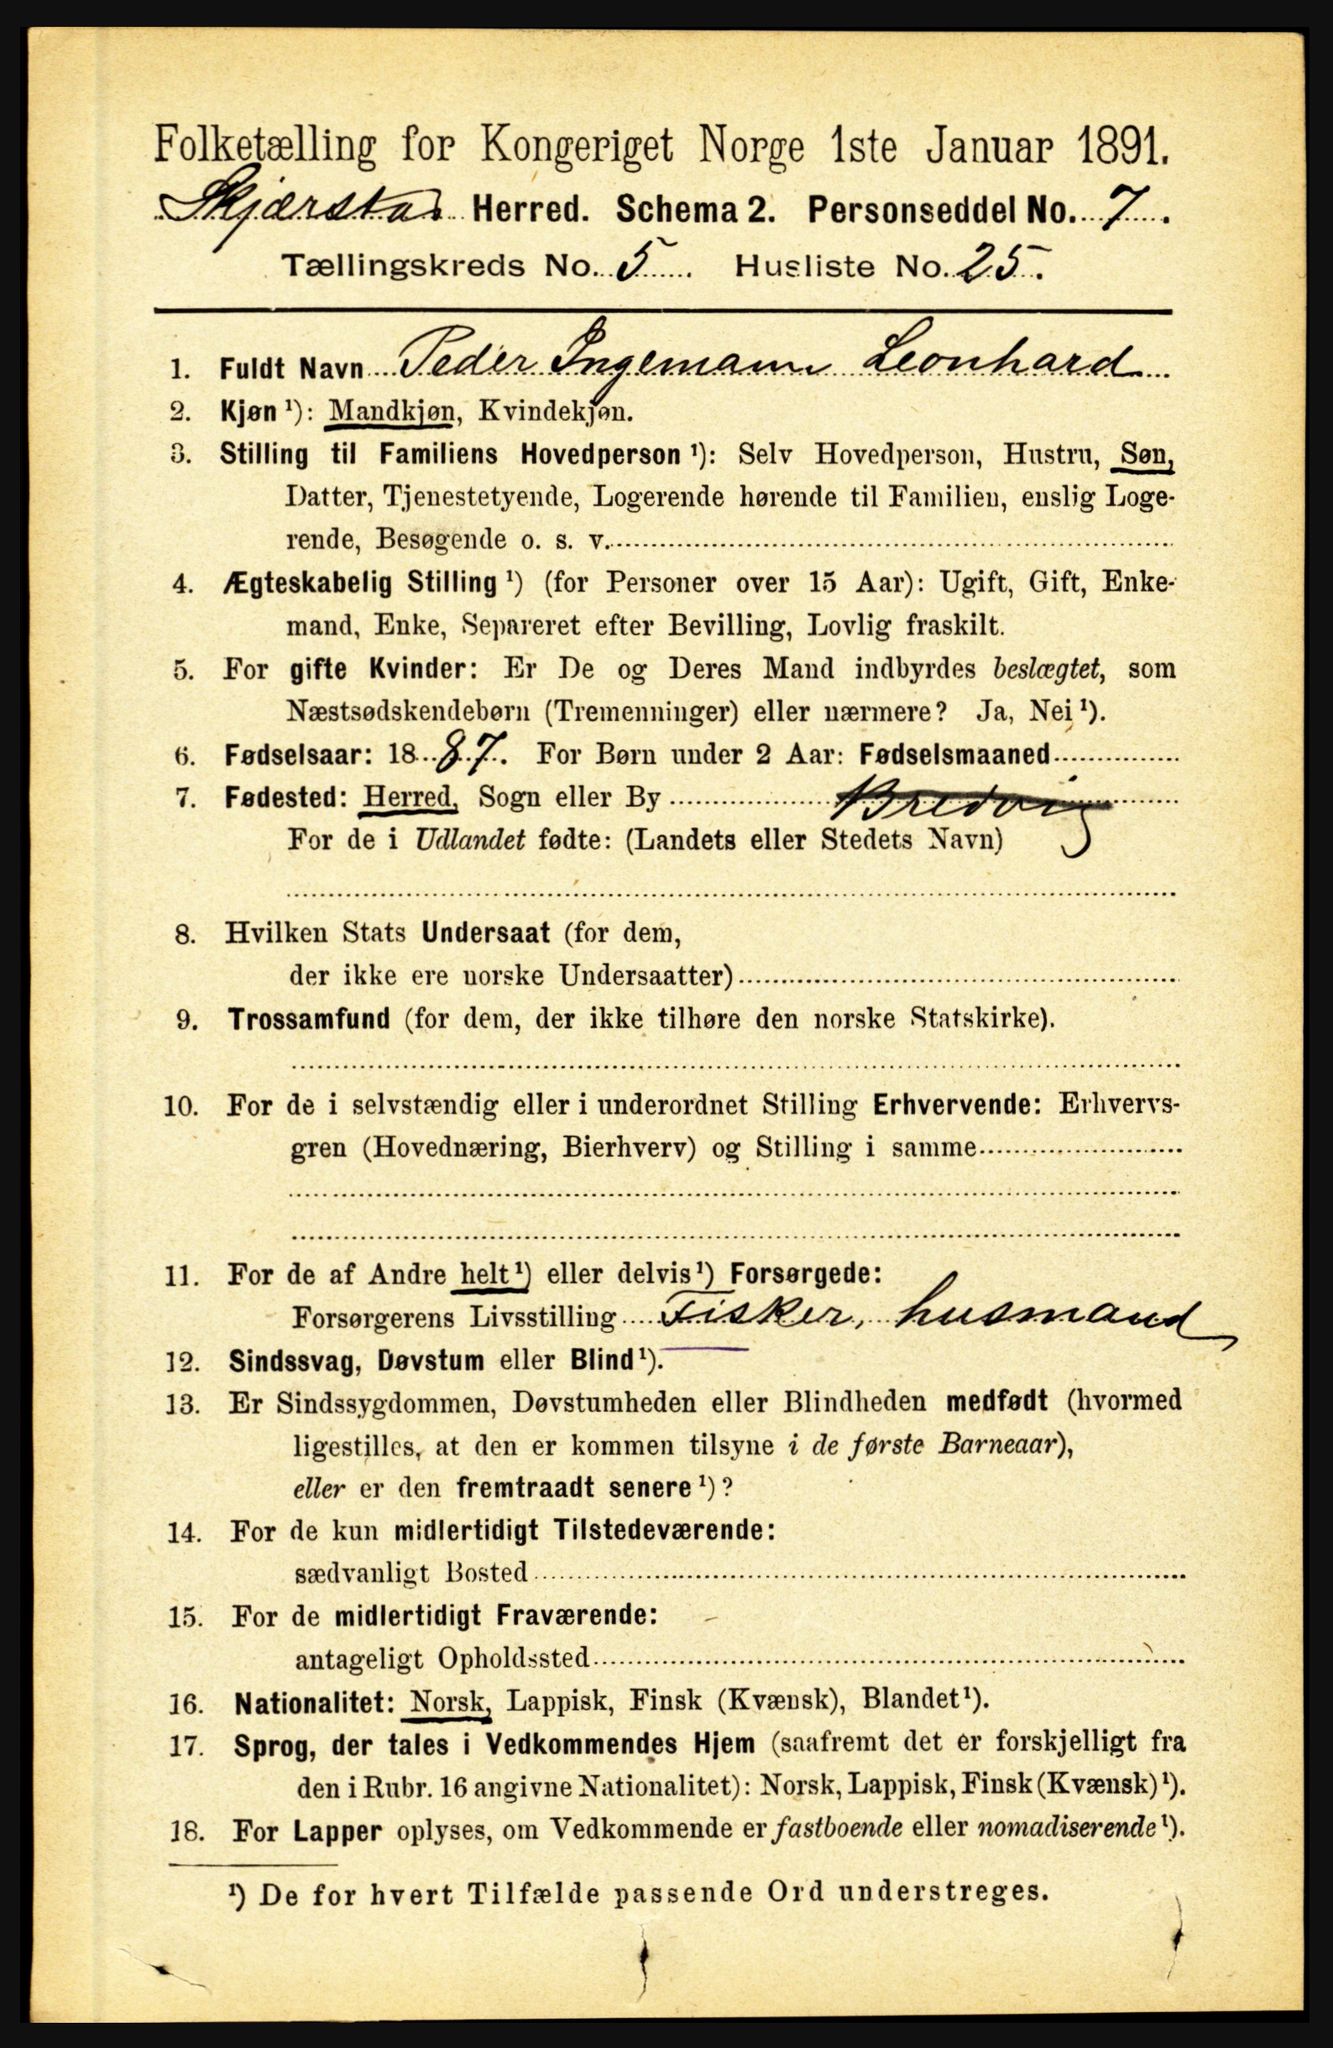 Folketælling for Kongeriget Norge 1ste Januar 1891.
Skjærstad Herred. Schema 2. Personseddel No. 7.
Tællingskreds No. 5. Husliste No. 25.
1. Fuldt Navn Peder Ingemann Leonhard
2. Kjøn ¹): Mandkjøn, Kvindekjøn.
3. Stilling til Familiens Hovedperson ¹): Selv Hovedperson, Hustru, Søn,
Datter, Tjenestetyende, Logerende hørende til Familien, enslig Loge-
rende, Besøgende o. s. v.
4. Ægteskabelig Stilling ¹) (for Personer over 15 Aar): Ugift, Gift, Enke-
mand, Enke, Separeret efter Bevilling, Lovlig fraskilt.
5. For gifte Kvinder: Er De og Deres Mand indbyrdes beslægtet, som
Næstsødskendebørn (Tremenninger) eller nærmere? Ja, Nei ¹).
6. Fødselsaar: 1887. For Børn under 2 Aar: Fødselsmaaned
7. Fødested: Herred, Sogn eller By Bredvig
For de i Udlandet fødte: (Landets eller Stedets Navn)
8. Hvilken Stats Undersaat (for dem,
der ikke ere norske Undersaatter)
9. Trossamfund (for dem, der ikke tilhøre den norske Statskirke).
10. For de i selvstændig eller i underordnet Stilling Erhvervende: Erhvervs-
gren (Hovednæring, Bierhverv) og Stilling i samme
11. For de af Andre helt ¹) eller delvis ¹) Forsørgede:
Forsørgerens Livsstilling Fisker, husmand
12. Sindssvag, Døvstum eller Blind ¹).
13. Er Sindssygdommen, Døvstumheden eller Blindheden medfødt (hvormed
ligestilles, at den er kommen tilsyne i de første Barneaar),
eller er den fremtraadt senere ¹)?
14. For de kun midlertidigt Tilstedeværende:
sædvanligt Bosted
15. For de midlertidigt Fraværende:
antageligt Opholdssted
16. Nationalitet: Norsk, Lappisk, Finsk (Kvænsk), Blandet ¹).
17. Sprog, der tales i Vedkommendes Hjem (saafremt det er forskjelligt fra
den i Rubr. 16 angivne Nationalitet): Norsk, Lappisk, Finsk (Kvænsk) ¹).
18. For Lapper oplyses, om Vedkommende er fastboende eller nomadiserende ¹).
¹) De for hvert Tilfælde passende Ord understreges.